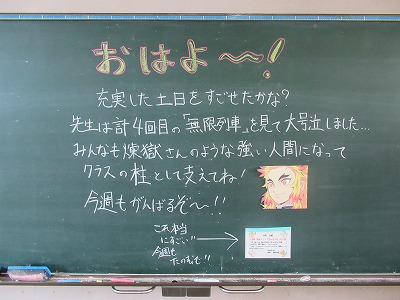 おはよ〜!
充実した土日をすごせたかな?
先生は計4回目の「無限列車」を見て大号泣しました…
みんなも煉獄さんのような強い人間になって
クラスの柱として支えてね!
今週もがんばるぞ〜!!
これ本当
にすごい!!
今週も
たのむぞ!!